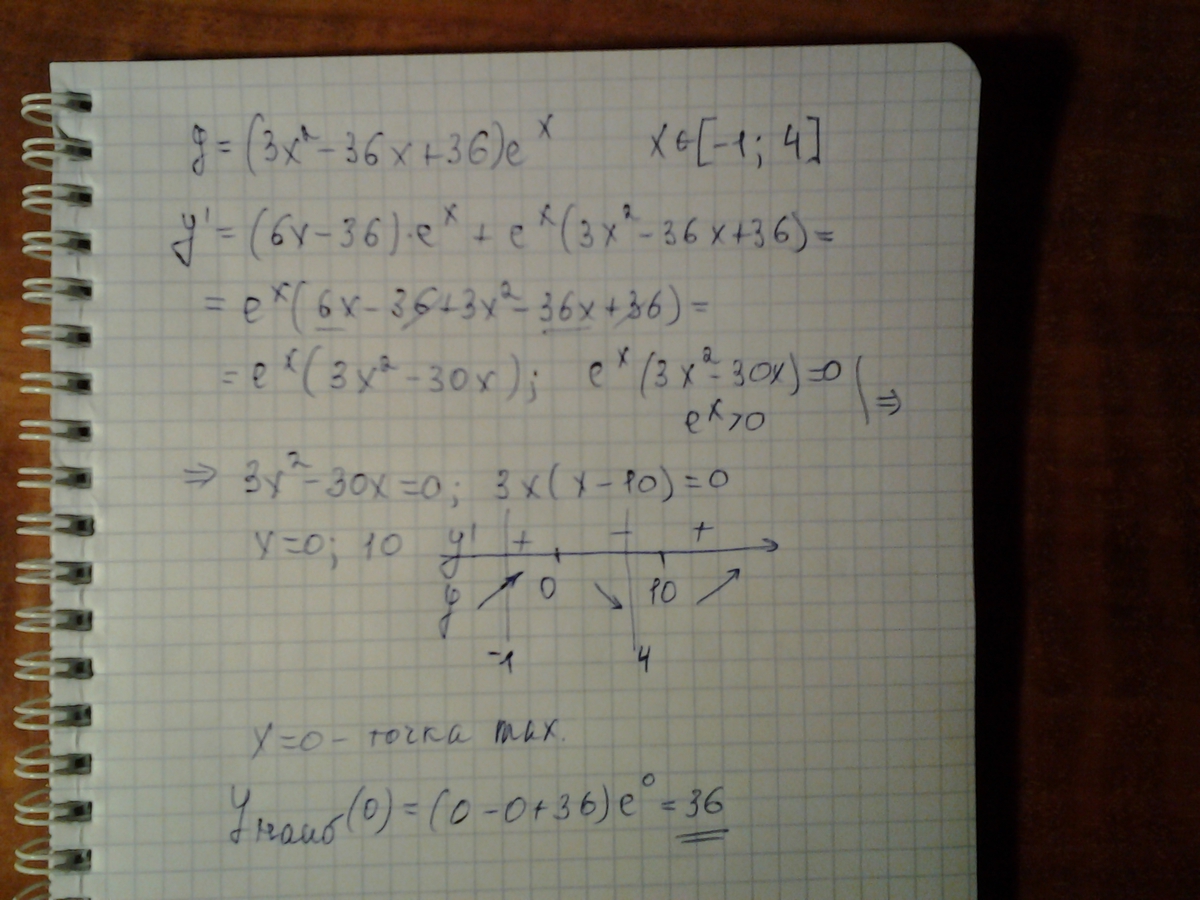 y = (3x² - 36x + 36)eˣ x ∈ [-1; 4]
y' = (6x - 36)·eˣ + eˣ(3x² - 36x + 36) =
= eˣ(6x - 36 + 3x² - 36x + 36) =
= eˣ(3x² - 30x); eˣ(3x² - 30x) = 0
eˣ > 0 ⇒
⇒ 3x² - 30x = 0; 3x(x - 10) = 0
x = 0; 10 y' + - +
y 0 10
-1 4
x = 0 - точка max.
y наиб (0) = (0 - 0 + 36)e⁰ = 36